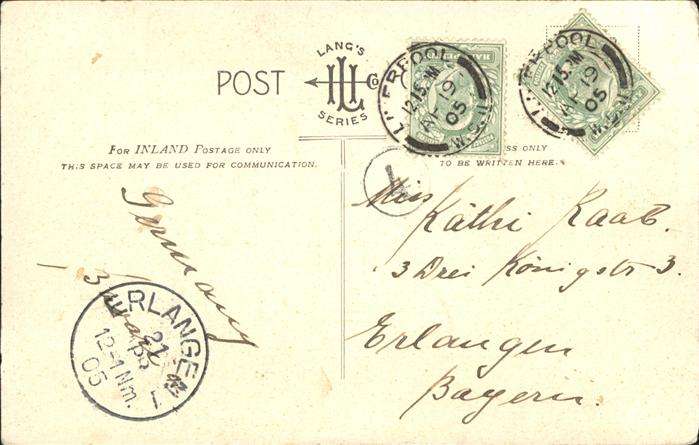 POST
LANG'S
LIL Co
SERIES
FOR INLAND POSTAGE ONLY
THIS SPACE MAY BE USED FOR COMMUNICATION.
SS ONLY
TO BE WRITTEN HERE.
LIVERPOOL
12.15 PM
AP 19
05
W.S.U.
LIVERPOOL
12.15 PM
AP 19
05
W.S.U.
T
Miss
Käthi Raab.
3 Drei Königstr 3.
Erlangen
Bayern.
Germany
ERLANGEN
21
12-1 Nm.
05
1.